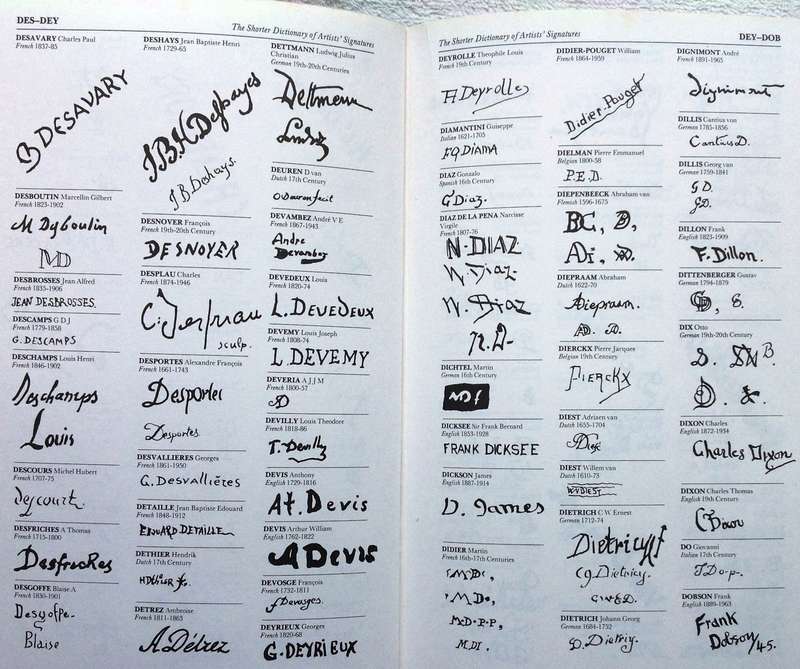 DES–DEY
The Shorter Dictionary of Artists' Signatures
DESAVARY Charles Paul
French 1837-85
DESAVARY
DESBOUTIN Marcellin Gilbert
French 1823-1902
M Desboutin
MD
DESBROSSES Jean Alfred
French 1835-1906
JEAN DESBROSSES.
DESCAMPS G D J
French 1779-1858
G. DESCAMPS
DESCHAMPS Louis Henri
French 1846-1902
Deschamps
Louis
DESCOURS Michel Hubert
French 1707-75
descourt
DESFRICHES A Thomas
French 1715-1800
Desfriches
DESGOFFE Blaise A
French 1830-1901
Desgoffe.
Blaise
DESHAYS Jean Baptiste Henri
French 1729-65
J.B.H Deshayes
J.B. Deshays.
DESNOYER François
French 19th-20th Century
DESNOYER
DESPLAU Charles
French 1874-1946
C. Despiau
sculp.
DESPORTES Alexandre François
French 1661-1743
Desportes
Desportes
DESVALLIERES Georges
French 1861-1950
G. Desvallières
DETAILLE Jean Baptiste Edouard
French 1848-1912
EDOUARD DETAILLE
DETHIER Hendrik
Dutch 17th Century
DETREZ Ambroise
French 1811-1863
A. Détrez
DETTMANN Ludwig Julius
Christian
German 19th-20th Centuries
Dettmann
Ludwig
DEUREN D van
Dutch 17th Century
DEVAMBEZ André V E
French 1867-1943
Andre
Devambez
DEVEDEUX Louis
French 1820-74
L. DEVEDEUX
DEVEMY Louis Joseph
French 1808-74
L. DEVEMY
DEVERIA A J J M
French 1800-57
AD
DEVILLY Louis Theodore
French 1818-86
T. Devilly
DEVIS Anthony
English 1729-1816
At. Devis
DEVIS Arthur William
English 1762-1822
A Devis
DEVOSGE François
French 1732-1811
f Devosges.
DEYRIEUX Georges
French 1820-68
G. DEYRIEUX
The Shorter Dictionary of Artists' Signatures
DEY–DOB
DEYROLLE Theophile Louis
French 19th Century
Deyrolle
DIAMANTINI Giuseppe
Italian 1621-1705
DIAMA
DIAZ Gonzalo
Spanish 16th Century
G Diaz.
DIAZ DE LA PENA Narcisse
Virgile
French 1807-76
N·DIAZ
N. Diaz.
N. Diaz
n. D-
DICHTEL Martin
German 16th Century
MDf
DICKSEE Sir Frank Bernard
English 1853-1928
FRANK DICKSEE
DICKSON James
English 1887-1914
D. James
DIDIER Martin
French 16th-17th Centuries
M. D.,
M. D.,
M·D·P·P,
M.DI.
DIDIER-POUGET William
French 1864-1959
Didier-Pouget
DIELMAN Pierre Emmanuel
Belgian 1800-58
P.E.D.
DIEPENBEECK Abraham van
Flemish 1596-1675
DIEPRAAM Abraham
Dutch 1622-70
Diepraam.
DIERCKX Pierre Jacques
Belgian 19th Century
PIERCKX
DIEST Adriaen van
Dutch 1655-1704
DIEST Willem van
Dutch 1610-73
DIETRICH C W Ernest
German 1712-74
Dietricy
Dietricy.
DIETRICH Johann Georg
German 1684-1752
D. Dietricy.
DIGNIMONT André
French 1891-1965
Dignimont
DILLIS Cantius von
German 1785-1856
Cantius D.
DILLIS Georg van
German 1759-1841
G D.
GD.
DILLON Frank
English 1823-1909
F. Dillon.
DITTENBERGER Gustav
German 1794-1879
DIX Otto
German 19th-20th Century
DIXON Charles
English 1872-1934
Charles Dixon
DIXON Charles Thomas
English 19th Century
DO Giovanni
Italian 17th Century
DOBSON Frank
English 1889-1963
Frank
Dobson/45.